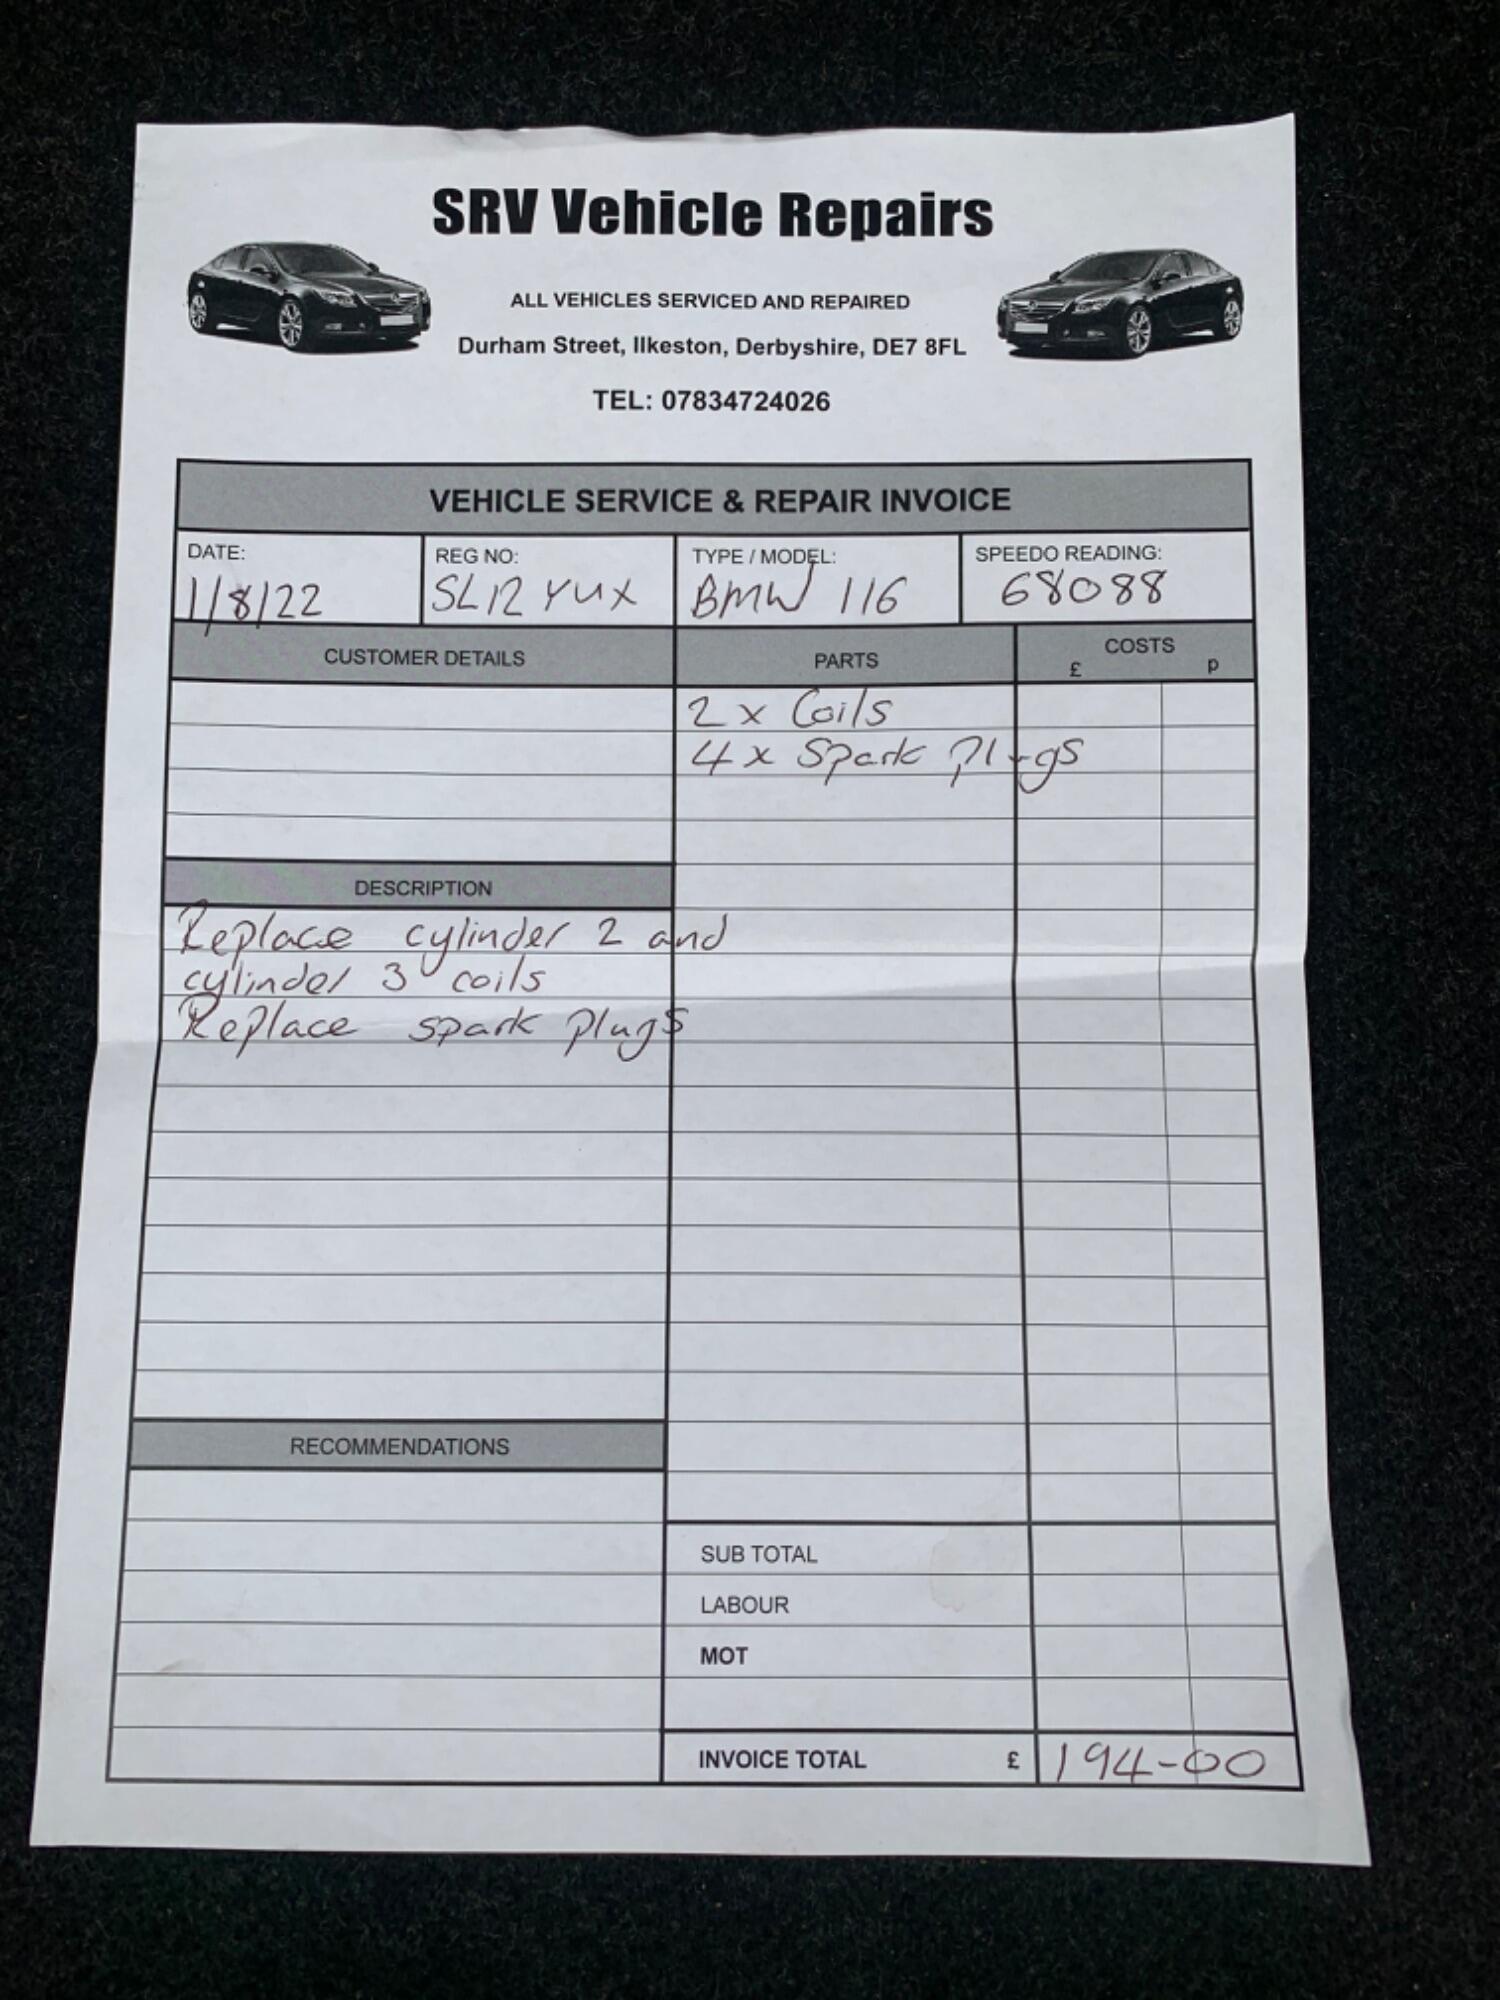 SRV Vehicle Repairs
ALL VEHICLES SERVICED AND REPAIRED
Durham Street, Ilkeston, Derbyshire, DE7 8FL
TEL: 07834724026
VEHICLE SERVICE & REPAIR INVOICE
DATE: REG NO: TYPE / MODEL: SPEEDO READING:
1/8/22 SL12 YUX BMW 116 68088
CUSTOMER DETAILS PARTS COSTS
£ p
2 x Coils
4 x Spark Plugs
DESCRIPTION
Replace cylinder 2 and
cylinder 3 coils
Replace spark plugs
RECOMMENDATIONS
SUB TOTAL
LABOUR
MOT
INVOICE TOTAL £ 194-00